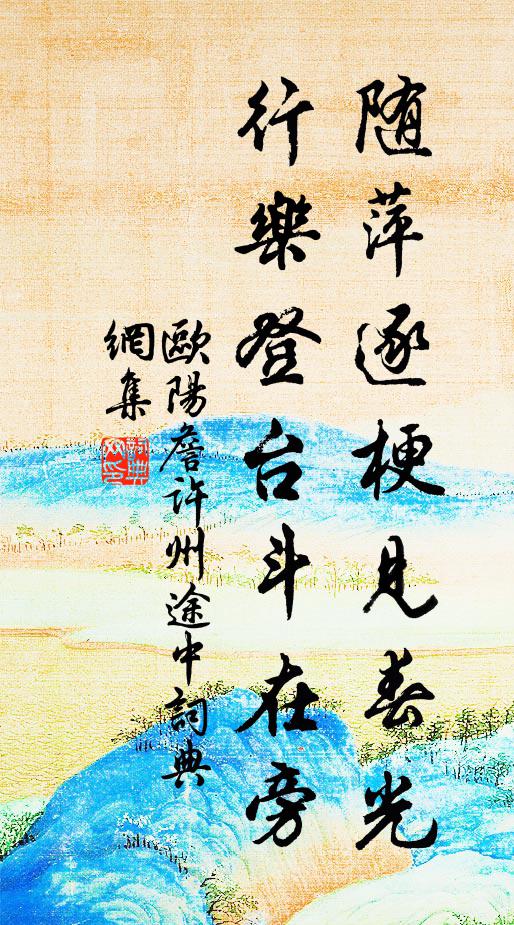 随萍逐梗見春光
行樂登台斗在旁
歐陽詹许州途中詞典
網集